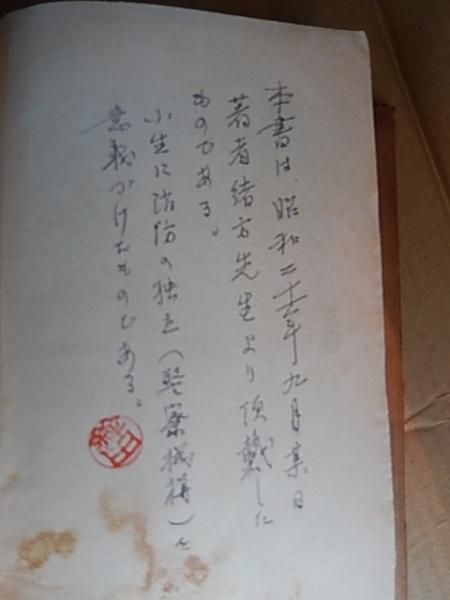 本書は、昭和二十六年九月某日
著者緒方先生より頂戴した
ものである。
小生に消防の独立(警察機構)を
意義づけたものである。